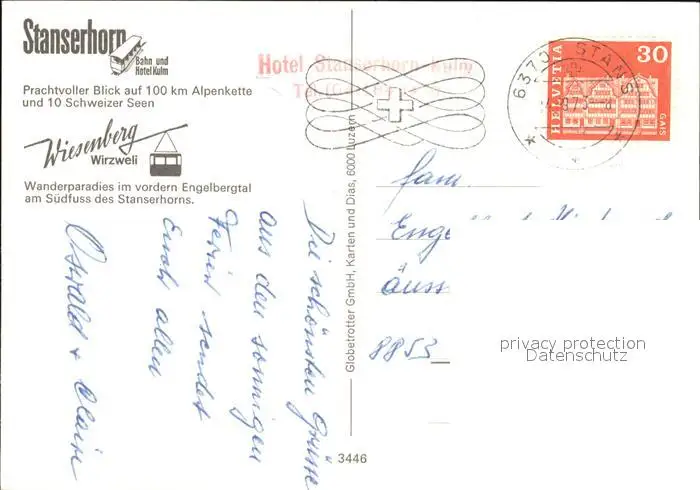 Stanserhorn
Bahn und
Hotel Kulm
Prachtvoller Blick auf 100 km Alpenkette
und 10 Schweizer Seen
Wiesenberg
Wirzweli
Wanderparadies im vordern Engelbergtal
am Südfuss des Stanserhorns.
Die schönsten Grüsse
aus den sonnigen
Ferien sendet
Euch allen
Oswald + Claire
Globetrotter GmbH, Karten und Dias, 6000 Luzern
3446
Hotel Stanserhorn-Kulm
6370 STANS
HELVETIA
30
GAIS
Fam.
Enge
äuss
8853
privacy protection
Datenschutz